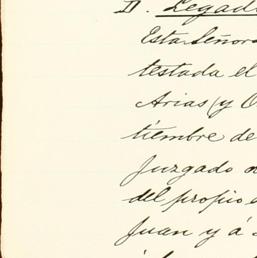 D. Legad
Esta Señora
testada el
Arias (y O
tiembre de
Juzgado
del propio e
Juan y á